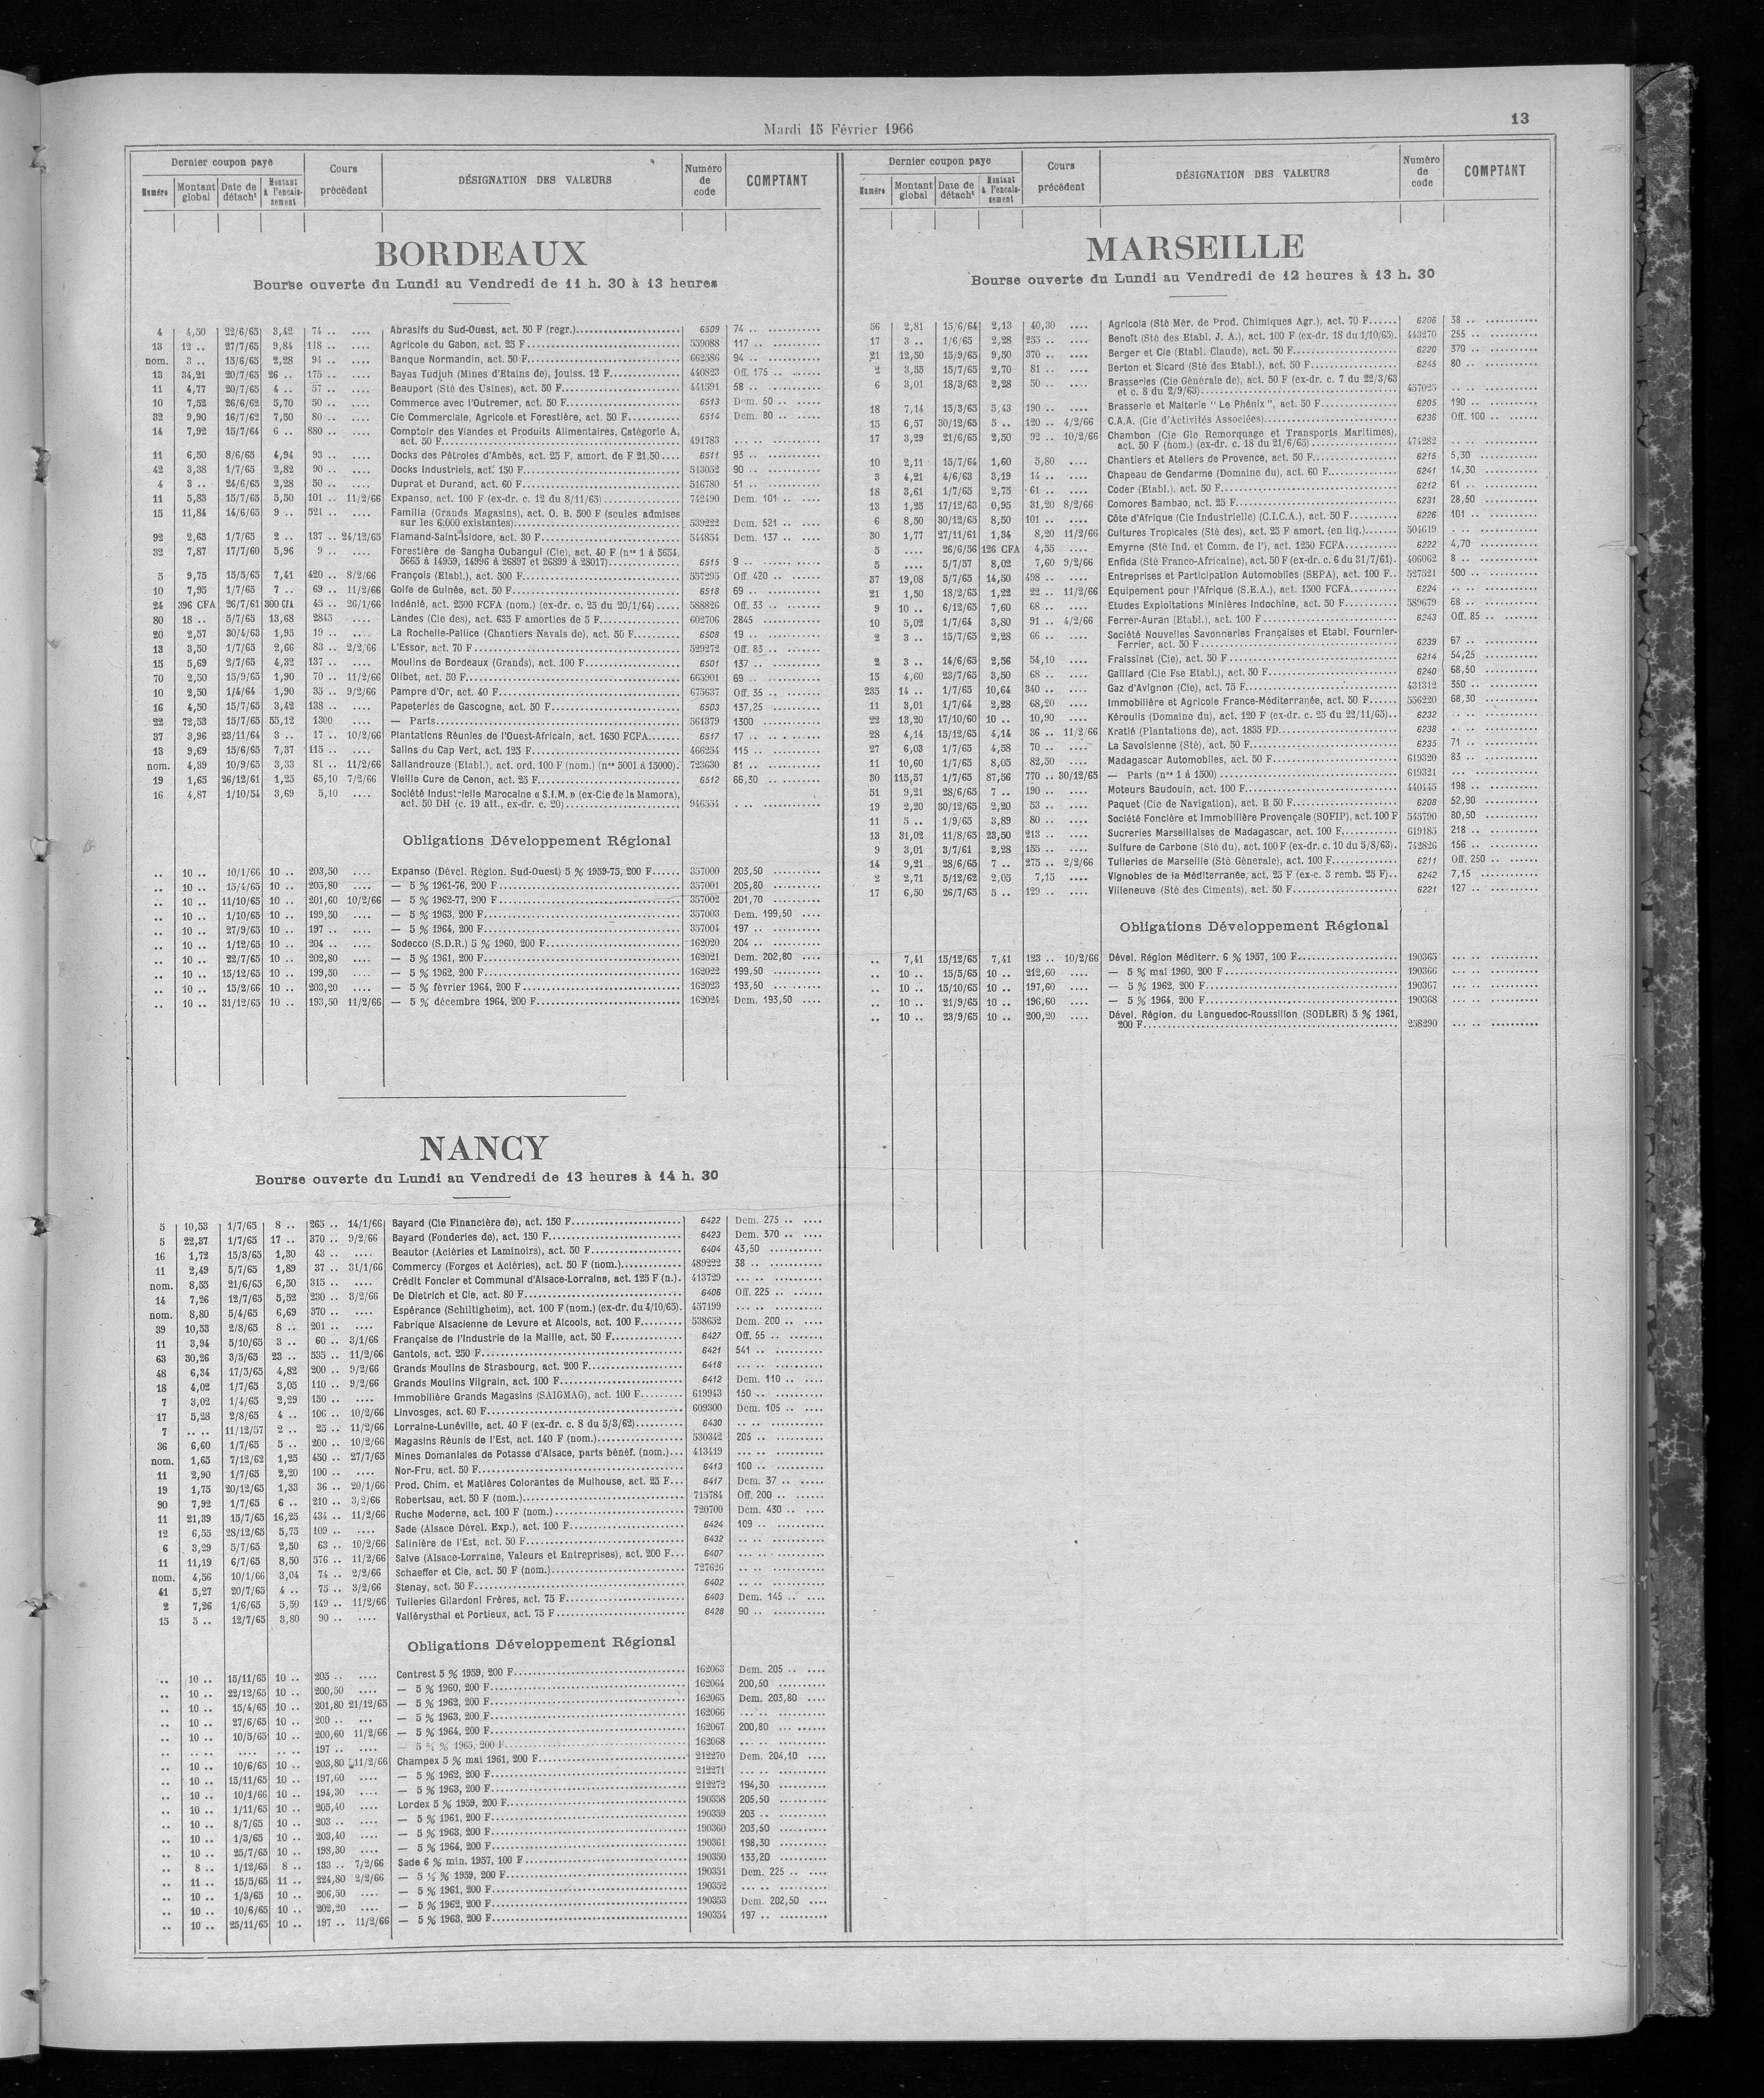 Mardi 15 Février 1966
13
Dernier coupon payé
Cours précédent
DÉSIGNATION DES VALEURS
Numéro de code
COMPTANT
Numéro
Montant global
Date de détacht
Montant à l'encaissement
BORDEAUX
Bourse ouverte du Lundi au Vendredi de 11 h. 30 à 13 heures
4 4,50 22/6/65 3,42 74 .. .... Abrasifs du Sud-Ouest, act. 50 F (regr.) 6509 74 ..
13 12 .. 27/7/65 9,84 118 .. .... Agricole du Gabon, act. 25 F 559088 117 ..
nom. 3 .. 15/6/65 2,28 94 .. .... Banque Normandin, act. 50 F 662586 94 ..
13 34,21 20/7/65 26 .. 175 .. .... Bayas Tudjuh (Mines d'Etains de), jouiss. 12 F 440823 Off. 175 ..
11 4,77 20/7/65 4 .. 57 .. .... Beauport (Sté des Usines), act. 50 F 441591 58 ..
10 7,52 26/6/62 5,70 50 .. .... Commerce avec l'Outremer, act. 50 F 6513 Dem. 50 ..
32 9,90 16/7/62 7,50 80 .. .... Cie Commerciale, Agricole et Forestière, act. 50 F 6514 Dem. 80 ..
14 7,92 15/7/64 6 .. 880 .. .... Comptoir des Viandes et Produits Alimentaires, Catégorie A,
act. 50 F 491783 ... ..
11 6,50 8/6/65 4,94 93 .. .... Docks des Pétroles d'Ambès, act. 25 F, amort. de F 21,50 6511 93 ..
42 3,38 1/7/65 2,82 90 .. .... Docks Industriels, act. 150 F 513052 90 ..
4 3 .. 24/6/65 2,28 50 .. .... Duprat et Durand, act. 60 F 516780 51 ..
11 5,83 15/7/65 5,50 101 .. 11/2/66 Expanso, act. 100 F (ex-dr. c. 12 du 8/11/65) 742490 Dem. 101 ..
15 11,84 14/6/65 9 .. 521 .. .... Familia (Grands Magasins), act. O. B. 500 F (seules admises
sur les 6.000 existantes) 539222 Dem. 521 ..
92 2,63 1/7/65 2 .. 137 .. 24/12/65 Flamand-Saint-Isidore, act. 30 F 544854 Dem. 137 ..
32 7,87 17/7/60 5,96 9 .. .... Forestière de Sangha Oubangui (Cie), act. 40 F (nos 1 à 5654,
5665 à 14959, 14996 à 26897 et 26899 à 28017) 6515 9 ..
5 9,75 15/5/65 7,41 420 .. 8/2/66 François (Etabl.), act. 500 F 557295 Off. 420 ..
10 7,95 1/7/65 7 .. 69 .. 11/2/66 Golfe de Guinée, act. 50 F 6518 69 ..
24 396 CFA 26/7/61 300 CFA 45 .. 26/1/66 Indénié, act. 2500 FCFA (nom.) (ex-dr. c. 25 du 20/1/64) 588826 Off. 33 ..
80 18 .. 5/7/65 13,68 2845 .... Landes (Cie des), act. 635 F amorties de 5 F 602706 2845
20 2,57 30/4/63 1,95 19 .. .... La Rochelle-Pallice (Chantiers Navals de), act. 50 F 6508 19 ..
13 3,50 1/7/65 2,66 83 .. 2/2/66 L'Essor, act. 70 F 529272 Off. 83 ..
15 5,69 2/7/65 4,32 137 .. .... Moulins de Bordeaux (Grands), act. 100 F 6501 137 ..
70 2,50 15/9/65 1,90 70 .. 11/2/66 Olibet, act. 50 F 665901 69 ..
10 2,50 1/4/64 1,90 35 .. 9/2/66 Pampre d'Or, act. 40 F 675637 Off. 35 ..
16 4,50 15/7/65 3,42 138 .. .... Papeteries de Gascogne, act. 50 F 6503 137,25
22 72,53 15/7/65 55,12 1300 .... — Parts 561379 1300
37 3,96 23/11/64 3 .. 17 .. 10/2/66 Plantations Réunies de l'Ouest-Africain, act. 1650 FCFA 6517 17 ..
13 9,69 15/6/65 7,37 115 .. .... Salins du Cap Vert, act. 125 F 466254 115 ..
nom. 4,39 10/9/65 3,33 81 .. 11/2/66 Sallandrouze (Etabl.), act. ord. 100 F (nom.) (nos 5001 à 15000) 723630 81 ..
19 1,65 26/12/61 1,25 65,10 7/2/66 Vieille Cure de Cenon, act. 25 F 6512 66,30
16 4,87 1/10/54 3,69 5,10 .... Société Industrielle Marocaine « S.I.M. » (ex-Cie de la Mamora),
act. 50 DH (c. 19 att., ex-dr. c. 20) 946554 . ..
Obligations Développement Régional
.. 10 .. 10/1/66 10 .. 203,50 .... Expanso (Dével. Région. Sud-Ouest) 5 % 1959-75, 200 F 357000 203,50
.. 10 .. 15/4/65 10 .. 205,80 .... — 5 % 1961-76, 200 F 357001 205,80
.. 10 .. 11/10/65 10 .. 201,60 10/2/66 — 5 % 1962-77, 200 F 357002 201,70
.. 10 .. 1/10/65 10 .. 199,50 .... — 5 % 1963, 200 F 357003 Dem. 199,50
.. 10 .. 27/9/65 10 .. 197 .. .... — 5 % 1964, 200 F 357004 197 ..
.. 10 .. 1/12/65 10 .. 204 .. .... Sodecco (S.D.R.) 5 % 1960, 200 F 162020 204 ..
.. 10 .. 22/7/65 10 .. 202,80 .... — 5 % 1961, 200 F 162021 Dem. 202,80
.. 10 .. 15/12/65 10 .. 199,50 .... — 5 % 1962, 200 F 162022 199,50
.. 10 .. 15/2/66 10 .. 203,20 .... — 5 % février 1964, 200 F 162023 193,50
.. 10 .. 31/12/65 10 .. 193,50 11/2/66 — 5 % décembre 1964, 200 F 162024 Dem. 193,50
NANCY
Bourse ouverte du Lundi au Vendredi de 13 heures à 14 h. 30
5 10,53 1/7/65 8 .. 265 .. 14/1/66 Bayard (Cie Financière de), act. 150 F 6422 Dem. 275 ..
5 22,37 1/7/65 17 .. 370 .. 9/2/66 Bayard (Fonderies de), act. 150 F 6423 Dem. 370 ..
16 1,72 15/3/65 1,30 43 .. .... Beautor (Aciéries et Laminoirs), act. 50 F 6404 43,50
11 2,49 5/7/65 1,89 37 .. 31/1/66 Commercy (Forges et Aciéries), act. 50 F (nom.) 489222 38 ..
nom. 8,55 21/6/65 6,50 315 .. .... Crédit Foncier et Communal d'Alsace-Lorraine, act. 125 F (n.) 413729 ... ..
14 7,26 12/7/65 5,52 230 .. 3/2/66 De Dietrich et Cie, act. 80 F 6406 Off. 225 ..
nom. 8,80 5/4/65 6,69 370 .. .... Espérance (Schiltigheim), act. 100 F (nom.) (ex-dr. du 4/10/65) 457199 ... ..
39 10,53 2/8/65 8 .. 201 .. .... Fabrique Alsacienne de Levure et Alcools, act. 100 F 538652 Dem. 200 ..
11 3,94 5/10/65 3 .. 60 .. 3/1/66 Française de l'Industrie de la Maille, act. 50 F 6427 Off. 55 ..
63 30,26 3/5/65 23 .. 535 .. 11/2/66 Gantois, act. 250 F 6421 541 ..
48 6,34 17/5/65 4,82 200 .. 9/2/66 Grands Moulins de Strasbourg, act. 200 F 6418 ... ..
18 4,02 1/7/65 3,05 110 .. 9/2/66 Grands Moulins Vilgrain, act. 100 F 6412 Dem. 110 ..
7 3,02 1/4/65 2,29 150 .. .... Immobilière Grands Magasins (SAIGMAG), act. 100 F 619943 150 ..
17 5,28 2/8/65 4 .. 106 .. 10/2/66 Linvosges, act. 60 F 609300 Dem. 105 ..
7 .. .. 11/12/57 2 .. 25 .. 11/2/66 Lorraine-Lunéville, act. 40 F (ex-dr. c. 8 du 5/3/62) 6430 .. ..
36 6,60 1/7/65 5 .. 200 .. 10/2/66 Magasins Réunis de l'Est, act. 140 F (nom.) 530342 205 ..
nom. 1,65 7/12/62 1,25 450 .. 27/7/65 Mines Domaniales de Potasse d'Alsace, parts bénéf. (nom.) 413419 ... ..
11 2,90 1/7/65 2,20 100 .. .... Nor-Fru, act. 50 F 6413 100 ..
19 1,75 20/12/65 1,33 36 .. 20/1/66 Prod. Chim. et Matières Colorantes de Mulhouse, act. 25 F 6417 Dem. 37 ..
90 7,92 1/7/65 6 .. 210 .. 3/2/66 Robertsau, act. 50 F (nom.) 715784 Off. 200 ..
11 21,39 15/7/65 16,25 434 .. 11/2/66 Ruche Moderne, act. 100 F (nom.) 720700 Dem. 430 ..
12 6,55 28/12/65 5,75 109 .. .... Sade (Alsace Dével. Exp.), act. 100 F 6424 109 ..
6 3,29 5/7/65 2,50 63 .. 10/2/66 Salinière de l'Est, act. 50 F 6432 .. ..
11 11,19 6/7/65 8,50 576 .. 11/2/66 Salve (Alsace-Lorraine, Valeurs et Entreprises), act. 200 F 6407 ... ..
nom. 4,56 10/1/66 3,04 74 .. 2/2/66 Schaeffer et Cie, act. 50 F (nom.) 727626 .. ..
41 5,27 20/7/65 4 .. 75 .. 3/2/66 Stenay, act. 50 F 6402 .. ..
2 7,26 1/6/65 5,50 149 .. 11/2/66 Tuileries Gilardoni Frères, act. 75 F 6403 Dem. 145 ..
15 5 .. 12/7/65 3,80 90 .. .... Vallérysthal et Portieux, act. 75 F 6428 90 ..
Obligations Développement Régional
.. 10 .. 15/11/65 10 .. 205 .. .... Centrest 5 % 1959, 200 F 162063 Dem. 205 ..
.. 10 .. 22/12/65 10 .. 200,50 .... — 5 % 1960, 200 F 162064 200,50
.. 10 .. 15/4/65 10 .. 201,80 21/12/65 — 5 % 1962, 200 F 162065 Dem. 203,80
.. 10 .. 27/6/65 10 .. 200 .. ... — 5 % 1963, 200 F 162066 ... ..
.. 10 .. 10/5/65 10 .. 200,60 11/2/66 — 5 % 1964, 200 F 162067 200,80
.. .. .. .... .. .. 197 .. .... — 5 % 1965, 200 F 162068 ... ..
.. 10 .. 10/6/65 10 .. 203,80 11/2/66 Champex 5 % mai 1961, 200 F 212270 Dem. 204,10
.. 10 .. 15/11/65 10 .. 197,60 .... — 5 % 1962, 200 F 212271 ... ..
.. 10 .. 10/1/66 10 .. 194,30 .... — 5 % 1963, 200 F 212272 194,30
.. 10 .. 1/11/65 10 .. 205,40 .... Lordex 5 % 1959, 200 F 190358 205,50
.. 10 .. 8/7/65 10 .. 203 .. .... — 5 % 1961, 200 F 190359 203 ..
.. 10 .. 1/3/65 10 .. 203,40 .... — 5 % 1963, 200 F 190360 203,50
.. 10 .. 25/7/65 10 .. 198,30 .... — 5 % 1964, 200 F 190361 198,30
.. 8 .. 1/12/65 8 .. 133 .. 7/2/66 Sade 6 % min. 1957, 100 F 190350 133,20
.. 11 .. 15/5/65 11 .. 224,80 2/2/66 — 5 ½ % 1959, 200 F 190351 Dem. 225 ..
.. 10 .. 1/3/65 10 .. 206,50 .... — 5 % 1961, 200 F 190352 ... ..
.. 10 .. 10/6/65 10 .. 202,20 .... — 5 % 1962, 200 F 190353 Dem. 202,50
.. 10 .. 25/11/65 10 .. 197 .. 11/2/66 — 5 % 1963, 200 F 190354 197 ..
Dernier coupon payé
Cours précédent
DÉSIGNATION DES VALEURS
Numéro de code
COMPTANT
Numéro
Montant global
Date de détacht
Montant à l'encaissement
MARSEILLE
Bourse ouverte du Lundi au Vendredi de 12 heures à 13 h. 30
56 2,81 15/6/64 2,13 40,30 .... Agricola (Sté Mér. de Prod. Chimiques Agr.), act. 70 F 6206 38 ..
17 3 .. 1/6/65 2,28 255 .. .... Benoît (Sté des Etabl. J. A.), act. 100 F (ex-dr. 18 du 1/10/65) 443270 255 ..
21 12,50 15/9/65 9,50 370 .. .... Berger et Cie (Etabl. Claude), act. 50 F 6220 370 ..
2 3,55 15/7/65 2,70 81 .. .... Berton et Sicard (Sté des Etabl.), act. 50 F 6245 80 ..
6 3,01 18/3/63 2,28 50 .. .... Brasseries (Cie Générale de), act. 50 F (ex-dr. c. 7 du 22/3/63
et c. 8 du 2/9/63) 457025 .. ..
18 7,14 15/3/65 5,43 190 .. .... Brasserie et Malterie " Le Phénix ", act. 50 F 6205 190 ..
15 6,57 30/12/65 5 .. 120 .. 4/2/66 C.A.A. (Cie d'Activités Associées) 6236 Off. 100 ..
17 3,29 21/6/65 2,50 92 .. 10/2/66 Chambon (Cie Gle Remorquage et Transports Maritimes),
act. 50 F (nom.) (ex-dr. c. 18 du 21/6/65) 474282 .. ..
10 2,11 15/7/64 1,60 5,80 .... Chantiers et Ateliers de Provence, act. 50 F 6215 5,30
3 4,21 4/6/63 3,19 14 .. .... Chapeau de Gendarme (Domaine du), act. 60 F 6241 14,30
18 3,61 1/7/65 2,75 61 .. .... Coder (Etabl.), act. 50 F 6212 61 ..
13 1,25 17/12/63 0,95 31,20 8/2/66 Comores Bambao, act. 25 F 6231 28,50
6 8,50 30/12/65 8,50 101 .. .... Côte d'Afrique (Cie Industrielle) (C.I.C.A.), act. 50 F 6226 101 ..
30 1,77 27/11/61 1,34 8,20 11/2/66 Cultures Tropicales (Sté des), act. 25 F amort. (en liq.) 504619 . ..
5 .... 26/6/56 126 CFA 4,55 .... Emyrne (Sté Ind. et Comm. de l'), act. 1250 FCFA 6222 4,70
5 .... 5/7/57 8,02 7,60 9/2/66 Enfida (Sté Franco-Africaine), act. 50 F (ex-dr. c. 6 du 31/7/61) 406062 8 ..
37 19,08 5/7/65 14,50 498 .. .... Entreprises et Participation Automobiles (SEPA), act. 100 F 527521 500 ..
21 1,50 18/2/65 1,22 22 .. 11/2/66 Equipement pour l'Afrique (S.E.A.), act. 1500 FCFA 6224 .. ..
9 10 .. 6/12/65 7,60 68 .. .... Etudes Exploitations Minières Indochine, act. 50 F 589679 68 ..
10 5,02 1/7/64 3,80 91 .. 4/2/66 Ferrer-Auran (Etabl.), act. 100 F 6243 Off. 85 ..
2 3 .. 15/7/65 2,28 66 .. .... Société Nouvelles Savonneries Françaises et Etabl. Fournier-
Ferrier, act. 50 F 6239 67 ..
2 3 .. 14/6/65 2,56 54,10 .... Fraissinet (Cie), act. 50 F 6214 54,25
15 4,60 23/7/65 3,50 68 .. .... Gaillard (Cie Fse Etabl.), act. 50 F 6240 68,50
235 14 .. 1/7/65 10,64 340 .. .... Gaz d'Avignon (Cie), act. 75 F 431312 350 ..
11 3,01 1/7/64 2,28 68,20 .... Immobilière et Agricole France-Méditerranée, act. 50 F 556220 68,30
22 13,20 17/10/60 10 .. 10,90 .... Kéroulis (Domaine du), act. 120 F (ex-dr. c. 25 du 22/11/65) 6232 .. ..
28 4,14 15/12/65 4,14 36 .. 11/2/66 Kratié (Plantations de), act. 1855 FD 6238 .. ..
27 6,03 1/7/65 4,58 70 .. .... La Savoisienne (Sté), act. 50 F 6235 71 ..
11 10,60 1/7/65 8,05 82,50 .... Madagascar Automobiles, act. 50 F 619320 83 ..
30 115,57 1/7/65 87,56 770 .. 30/12/65 — Parts (nos 1 à 1500) 619321 ...
51 9,21 28/6/65 7 .. 190 .. .... Moteurs Baudouin, act. 100 F 440445 198 ..
19 2,20 30/12/65 2,20 53 .. .... Paquet (Cie de Navigation), act. B 50 F 6208 52,90
11 5 .. 1/9/65 3,89 80 .. .... Société Foncière et Immobilière Provençale (SOFIP), act. 100 F 545790 80,50
13 31,02 11/8/65 23,50 213 .. .... Sucreries Marseillaises de Madagascar, act. 100 F 619185 218 ..
9 3,01 3/7/61 2,28 155 .. .... Sulfure de Carbone (Sté du), act. 100 F (ex-dr. c. 10 du 5/8/63) 742826 156 ..
14 9,21 28/6/65 7 .. 275 .. 2/2/66 Tuileries de Marseille (Sté Générale), act. 100 F 6211 Off. 250 ..
2 2,71 5/12/62 2,05 7,15 .... Vignobles de la Méditerranée, act. 25 F (ex-c. 3 remb. 25 F) 6242 7,15
17 6,50 26/7/65 5 .. 129 .. .... Villeneuve (Sté des Ciments), act. 50 F 6221 127 ..
Obligations Développement Régional
.. 7,41 15/12/65 7,41 123 .. 10/2/66 Dével. Région Méditerr. 6 % 1957, 100 F 190365 ... ..
.. 10 .. 15/5/65 10 .. 212,60 .... — 5 % mai 1960, 200 F 190366 ... ..
.. 10 .. 15/10/65 10 .. 197,60 .... — 5 % 1962, 200 F 190367 ... ..
.. 10 .. 21/9/65 10 .. 196,60 .... — 5 % 1964, 200 F 190368 ... ..
.. 10 .. 23/9/65 10 .. 200,20 .... Dével. Région. du Languedoc-Roussillon (SODLER) 5 % 1961,
200 F 258290 ... ..